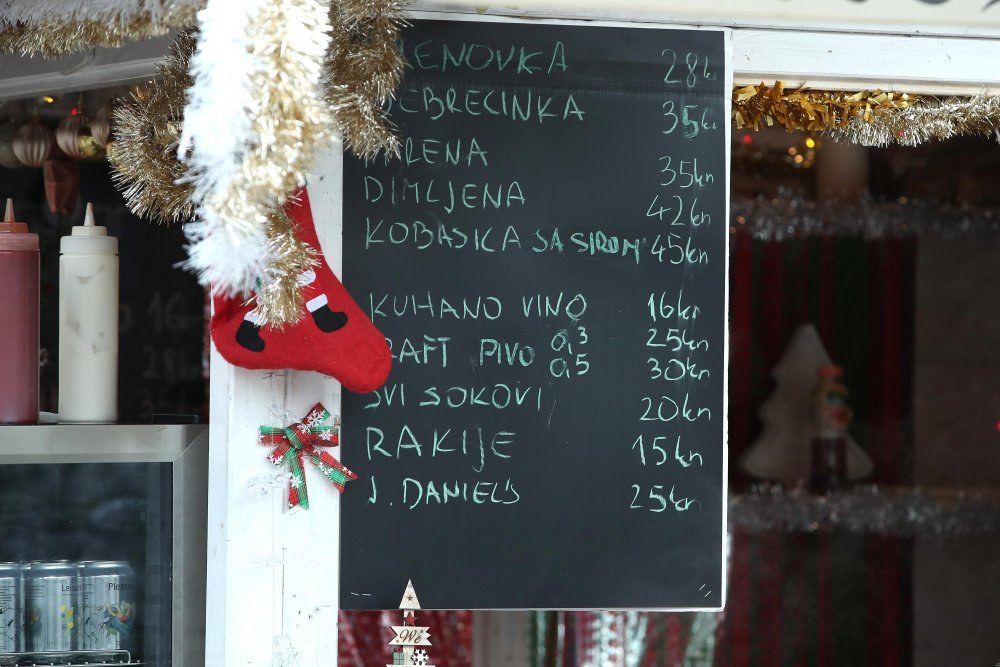 RENOVKA 28k
DEBRECINKA 35k
PARENA 35kn
DIMLJENA 42kn
KOBASICA SA SIROM 45kn
KUHANO VINO 16kn
CRAFT PIVO 0,3 25kn
0,5 30kn
SVI SOKOVI 20kn
RAKIJE 15kn
J. DANIEL'S 25kn
We